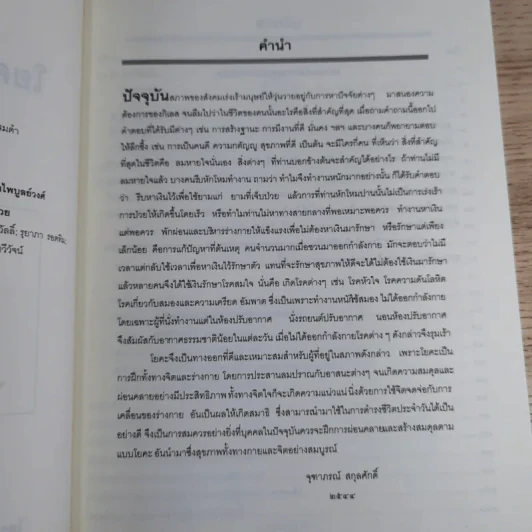 คำนำ
ปัจจุบันสภาพของสังคมเร่งเร้ามนุษย์ให้วุ่นวายอยู่กับการหาปัจจัยต่างๆ มาสนองความ
ต้องการของกิเลส จนลืมไปว่าในชีวิตของคนนั้นอะไรคือสิ่งที่สำคัญที่สุด เมื่อถามคำถามนี้ออกไป
คำตอบที่ได้รับมีต่างๆ เช่น การสร้างฐานะ การมีงานที่ดี มั่นคง ฯลฯ และบางคนก็พยายามตอบ
ให้ลึกซึ้ง เช่น การเป็นคนดี ความกตัญญู สุขภาพที่ดี เป็นต้น จะมีใครกี่คน ที่เห็นว่า สิ่งที่สำคัญ
ที่สุดในชีวิตคือ ลมหายใจนั่นเอง สิ่งต่างๆ ที่ท่านบอกข้างต้นจะสำคัญได้อย่างไร ถ้าท่านไม่มี
ลมหายใจแล้ว บางคนรีบหักโหมทำงาน ถามว่า ทำไมจึงทำงานหนักมากอย่างนั้น ก็ได้รับคำตอบ
ว่า รีบหาเงินไว้เพื่อใช้ยามแก่ ยามที่เจ็บป่วย แล้วการที่ท่านหักโหมปานนั้นไม่เป็นการเร่งเร้า
การป่วยให้เกิดขึ้นโดยเร็ว หรือทำไมท่านไม่หาทางสายกลางที่พอเหมาะพอควร ทำงานหาเงิน
แต่พอควร พักผ่อนและบริหารร่างกายให้แข็งแรงเพื่อไม่ต้องหาเงินมารักษา หรือรักษาแต่เพียง
เล็กน้อย คือการแก้ปัญหาที่ต้นเหตุ คนจำนวนมากเมื่อชวนมาออกกำลังกาย มักจะตอบว่าไม่มี
เวลาแต่กลับใช้เวลาเพื่อหาเงินไว้รักษาตัว แทนที่จะรักษาสุขภาพให้ดีจะได้ไม่ต้องใช้เงินมารักษา
แล้วหลายคนจึงได้ใช้เงินรักษาโรคสมใจ นั่นคือ เกิดโรคต่างๆ เช่น โรคหัวใจ โรคความดันโลหิต
โรคเกี่ยวกับสมองและความเครียด อัมพาต ซึ่งเป็นเพราะทำงานหนักใช้สมอง ไม่ได้ออกกำลังกาย
โดยเฉพาะผู้ที่นั่งทำงานแต่ในห้องปรับอากาศ นั่งรถยนต์ปรับอากาศ นอนห้องปรับอากาศ
จึงสัมผัสกับอากาศธรรมชาติน้อยในแต่ละวัน เมื่อไม่ได้ออกกำลังกายโรคต่าง ๆ ดังกล่าวจึงรุมเร้า
โยคะจึงเป็นทางออกที่ดีและเหมาะสมสำหรับผู้ที่อยู่ในสภาพดังกล่าว เพราะโยคะเป็น
การฝึกทั้งทางจิตและร่างกาย โดยการประสานลมปราณกับอาสนะต่างๆ จนเกิดความสมดุลและ
ผ่อนคลายอย่างมีประสิทธิภาพ ทั้งทางจิตใจก็จะเกิดความแน่วแน่ นิ่งด้วยการใช้จิตจดจ่อกับการ
เคลื่อนของร่างกาย อันเป็นผลให้เกิดสมาธิ ซึ่งสามารถนำมาใช้ในการดำรงชีวิตประจำวันได้เป็น
อย่างดี จึงเป็นการสมควรอย่างยิ่งที่บุคคลในปัจจุบันควรจะฝึกการผ่อนคลายและสร้างสมดุลตาม
แบบโยคะ อันนำมาซึ่งสุขภาพทั้งทางกายและจิตอย่างสมบูรณ์
จุฑาภรณ์ สกุลศักดิ์
๒๕๔๔